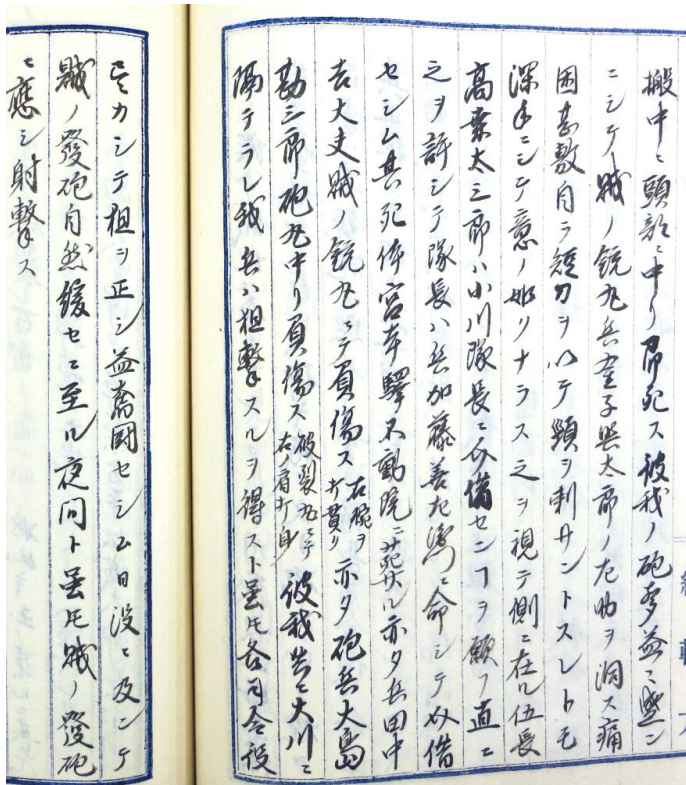 搬中ニ頭部ニ中リ即死ス彼我ノ砲声益ニ盛ン
ニシテ賊ノ銃丸兵金子與太郎ノ左肋ヲ洞ス痛
困甚敷自ラ短刀ヲ以テ頸ヲ刺サントスレトモ
深手ニシテ意ノ如リナラス之ヲ視テ側ニ在ル伍長
高桒太三郎ハ小川隊長ニ介借センヿヲ願フ直ニ
之ヲ許シテ隊長ハ兵加藤善左衛ニ命シテ介借
セシム其死体宮本驛不動院ニ葬ル亦タ兵田中
吉大丈賊ノ銃丸ニテ負傷ス右腕ヲ打貫リ亦タ砲兵大島
勘三郎砲丸中リ負傷ス破裂丸ニテ右ノ肩打身彼我共ニ大川ニ
隔テラレ我兵ハ狙撃スルヲ得スト虽モ各司令役
ヲシテ狙ヲ正シ益奮闘セシム日没ニ及ンテ
賊ノ發砲自然緩セニ至ル夜间ト虽モ賊ノ發砲
ニ應シ射撃ス